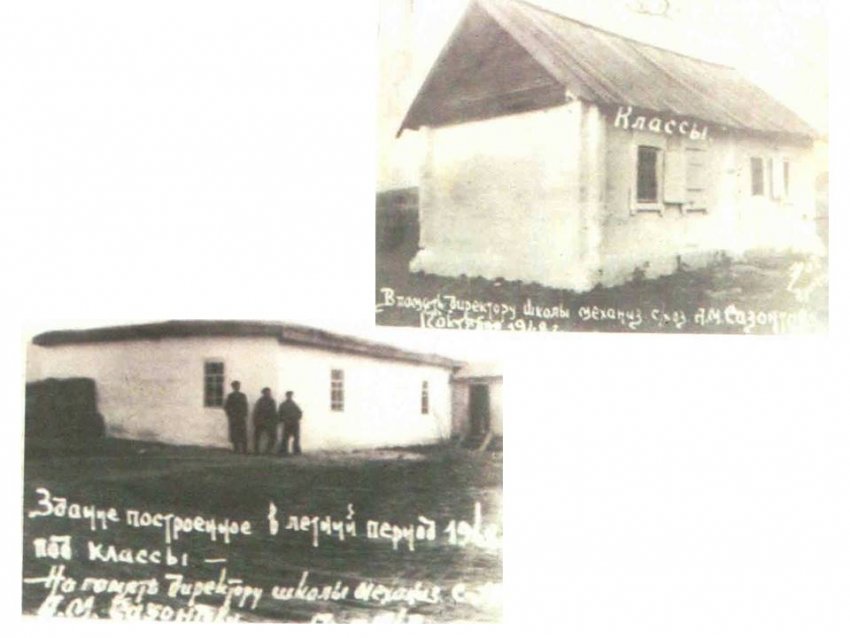 Классы
В память директору школы механиз. с.хоз. А.М. Сазонтову
17 октября 1948 г.
Здание построенное в летний период
под классы —
— На память директору школы механиз.
А.М. Сазонтову